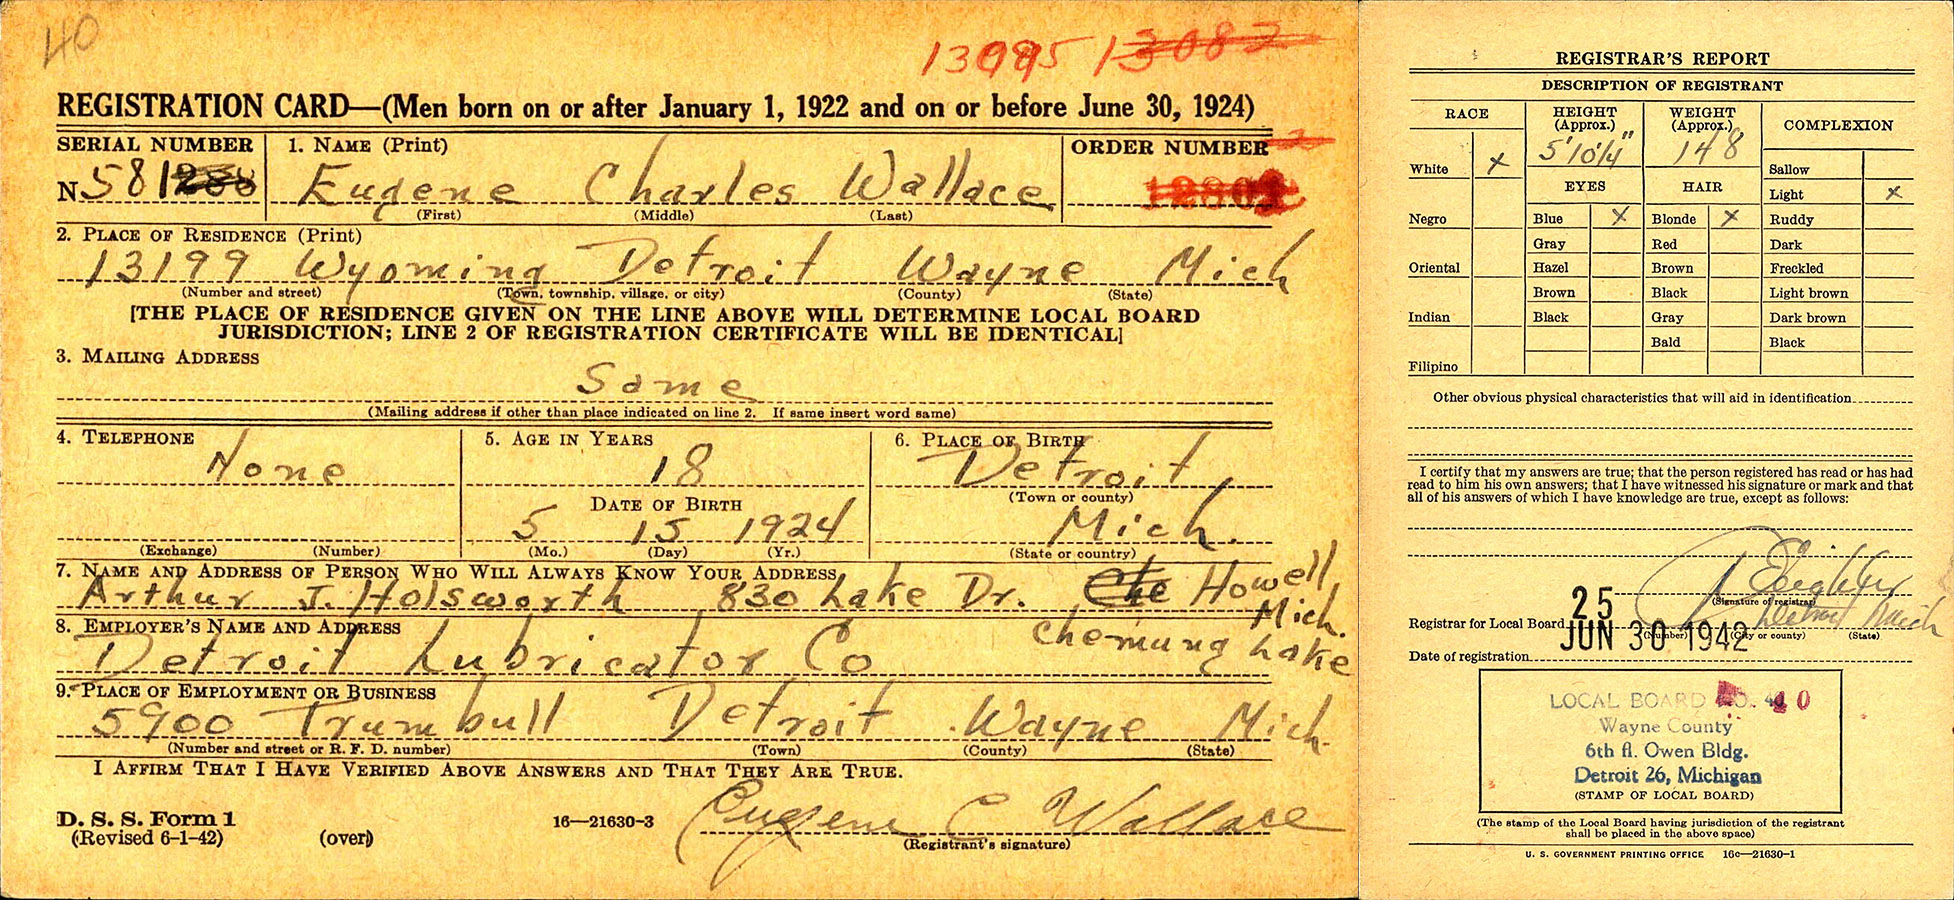 40
13095 13082
REGISTRATION CARD—(Men born on or after January 1, 1922 and on or before June 30, 1924)
SERIAL NUMBER
1. NAME (Print)
ORDER NUMBER
N 581
Eugene Charles Wallace
(First) (Middle) (Last)
2. PLACE OF RESIDENCE (Print)
13199 Wyoming Detroit Wayne Mich
(Number and street) (Town, township, village, or city) (County) (State)
[THE PLACE OF RESIDENCE GIVEN ON THE LINE ABOVE WILL DETERMINE LOCAL BOARD
JURISDICTION; LINE 2 OF REGISTRATION CERTIFICATE WILL BE IDENTICAL]
3. MAILING ADDRESS
Same
(Mailing address if other than place indicated on line 2. If same insert word same)
4. TELEPHONE
None
(Exchange) (Number)
5. AGE IN YEARS
18
DATE OF BIRTH
5 15 1924
(Mo.) (Day) (Yr.)
6. PLACE OF BIRTH
Detroit
(Town or county)
Mich.
(State or country)
7. NAME AND ADDRESS OF PERSON WHO WILL ALWAYS KNOW YOUR ADDRESS
Arthur J. Holsworth 830 Lake Dr. Che Howell
Mich.
Chemung Lake
8. EMPLOYER'S NAME AND ADDRESS
Detroit Lubricator Co
9. PLACE OF EMPLOYMENT OR BUSINESS
5900 Trumbull Detroit Wayne Mich.
(Number and street or R. F. D. number) (Town) (County) (State)
I AFFIRM THAT I HAVE VERIFIED ABOVE ANSWERS AND THAT THEY ARE TRUE.
Eugene C Wallace
(Registrant's signature)
D. S. S. Form 1
(Revised 6-1-42) (over) 16—21630-3
REGISTRAR'S REPORT
DESCRIPTION OF REGISTRANT
RACE
White x
Negro
Oriental
Indian
Filipino
HEIGHT
(Approx.)
5'10¼"
WEIGHT
(Approx.)
148
EYES
Blue x
Gray
Hazel
Brown
Black
HAIR
Blonde x
Red
Brown
Black
Gray
Bald
COMPLEXION
Sallow
Light x
Ruddy
Dark
Freckled
Light brown
Dark brown
Black
Other obvious physical characteristics that will aid in identification
I certify that my answers are true; that the person registered has read or has had
read to him his own answers; that I have witnessed his signature or mark and that
all of his answers of which I have knowledge are true, except as follows:
(Signature of registrar)
Registrar for Local Board 25 Detroit Mich
(Number) (City or county) (State)
Date of registration JUN 30 1942
LOCAL BOARD NO. 40
Wayne County
6th fl. Owen Bldg.
Detroit 26, Michigan
(STAMP OF LOCAL BOARD)
(The stamp of the Local Board having jurisdiction of the registrant
shall be placed in the above space)
U. S. GOVERNMENT PRINTING OFFICE 16c—21630-1